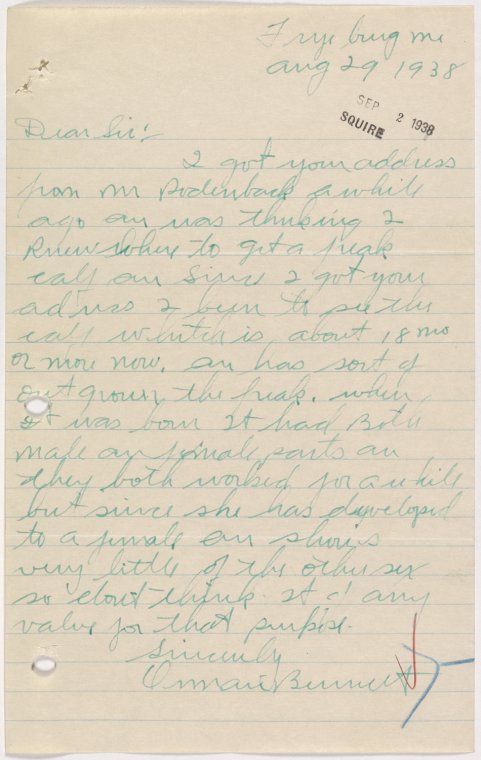 Frye burg me
aug 29 1938
SEP 2 1938
SQUIRE
Dear Sir:
I got your address
from Mr Rodenback awhile
ago an was thinking I
knew where to get a freak
calf an since I got your
adress I been to see the
calf whitch is about 18 mo
or more now. an has sort of
out grown the freak. when
it was born it had Both
male an female parts an
they both worked for awhile
but since she has developed
to a female an shows
very little of the other sex
so dont think it any
value for that purpose.
Sincerely
Bennett